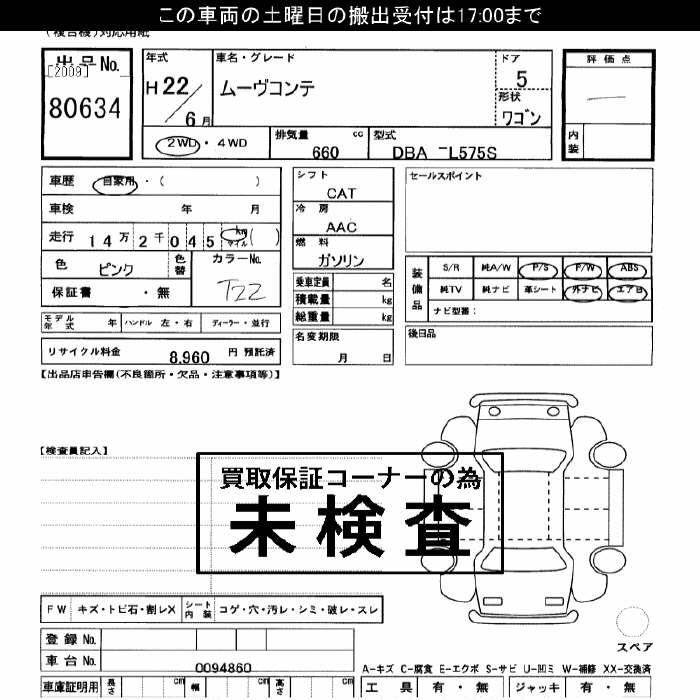 この車両の土曜日の搬出受付は17:00まで
(複合機)対応用紙
出品No.
[2009]
80634
年式
H 22/6月
車名・グレード
ムーヴコンテ
ドア
5
形状
ワゴン
評価点
内装
2WD・4WD
排気量 cc
660
型式
DBA -L575S
車歴 自家用・( )
車検 年 月
走行 14万2千045 km マイル ( )
色 ピンク
色替
カラーNo.
T22
保証書 ・無
モデル年式 年
ハンドル 左・右
ディーラー・並行
リサイクル料金 8,960 円 預託済
シフト
CAT
冷房
AAC
燃料
ガソリン
乗車定員 名
積載量 kg
総重量 kg
名変期限
月 日
セールスポイント
装備品
S/R 純A/W P/S P/W ABS
純TV 純ナビ 革シート 外ナビ エアB
ナビ型番:
後日品
【出品店申告欄(不良箇所・欠品・注意事項等)】
【検査員記入】
買取保証コーナーの為
未検査
FW キズ・トビ石・割レX
シート内装 コゲ・穴・汚レ・シミ・破レ・スレ
登録No.
車台No.
0094860
車庫証明用 長さ cm 幅 cm 高さ cm
スペア
A-キズ C-腐食 E-エクボ S-サビ U-凹ミ W-補修 XX-交換済
工具 有・無 ジャッキ 有・無